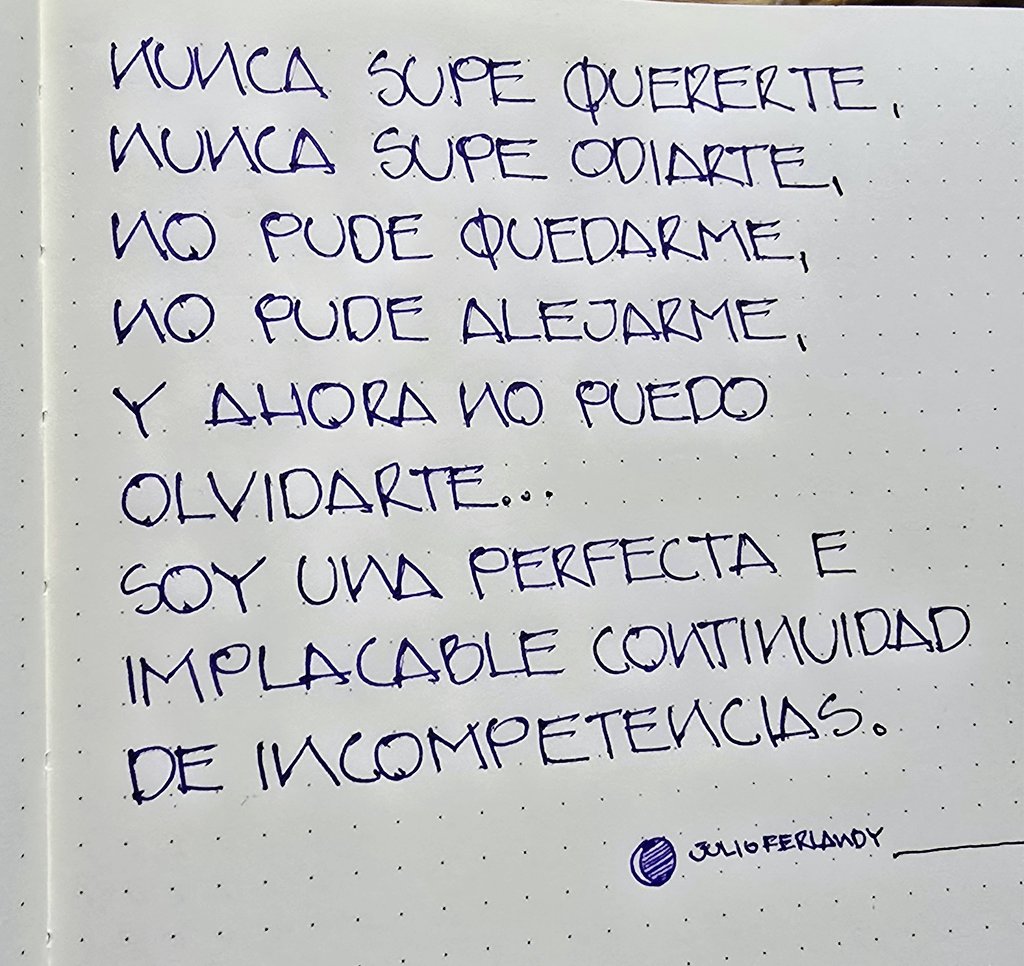 NUNCA SUPE QUERERTE,
NUNCA SUPE ODIARTE,
NO PUDE QUEDARME,
NO PUDE ALEJARME,
Y AHORA NO PUEDO
OLVIDARTE...
SOY UNA PERFECTA E
IMPLACABLE CONTINUIDAD
DE INCOMPETENCIAS.
JULIO FERLANDY